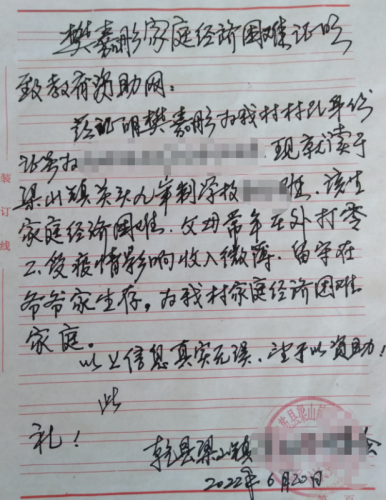 樊嘉彤家庭经济困难证明
致教育资助网:
兹证明樊嘉彤为我村村民身份
证号为 现就读于
梁山镇关头九年制学校 班,该生
家庭经济困难,父母常年在外打零
工受疫情影响收入微薄,留守在
爷爷家生存,为我村家庭经济困难
家庭。
以上信息真实无误,望予以资助!
此
礼!
乾县梁山镇 会
2022年6月20日
装订线
乾县梁山镇